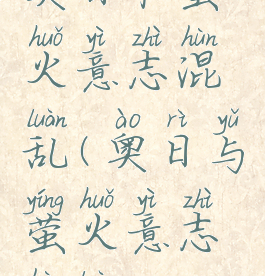 huǒ yì zhì hùn
火意志混
luàn ào rì yǔ
乱(奥日与
yíng huǒ yì zhì
萤火意志